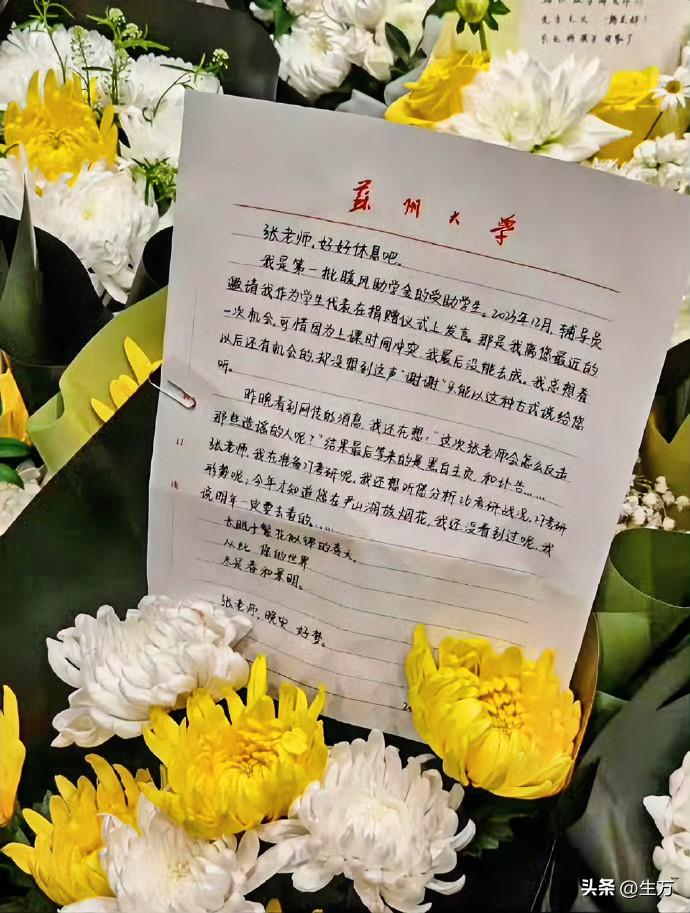 苏州大学
张老师，好好休息吧。
我是第一批暖风助学金的受助学生。2023年12月，辅导员
邀请我作为学生代表在捐赠仪式上发言。那是我离您最近的
一次机会，可惜因为上课时间冲突，我最后没能去成。我总想着
以后还有机会的，却没想到这声“谢谢”只能以这种方式说给您
听。
昨晚看到网传的消息，我还在想：“这次张老师会怎么反击
那些造谣的人呢？”结果最后等来的是黑白主页，和讣告……
张老师，我在准备27考研呢，我还想听您分析26考研战况、27考研
形势呢；今年才知道您在尹山湖放烟花，我还没看到过呢，我
说明年一定要去看的……
长眠于繁花似锦的春天，
从此，您的世界
尽是春和景明。
张老师，晚安，好梦。
头条 @生万